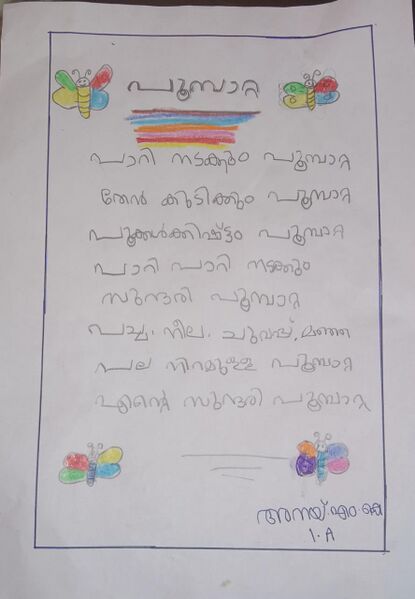 പൂമ്പാറ്റ
പാറി നടക്കും പൂമ്പാറ്റ
തേൻ കുടിക്കും പൂമ്പാറ്റ
പൂക്കൾക്കിഷ്ട്ടം പൂമ്പാറ്റ
പാറി പാറി നടക്കും
സുന്ദരി പൂമ്പാറ്റ
പച്ച. നീല. ചുവപ്പ്. മഞ്ഞ
പല നിറമുള്ള പൂമ്പാറ്റ
എൻ്റെ സുന്ദരി പൂമ്പാറ്റ
അനയ്.എം.കെ
1. A